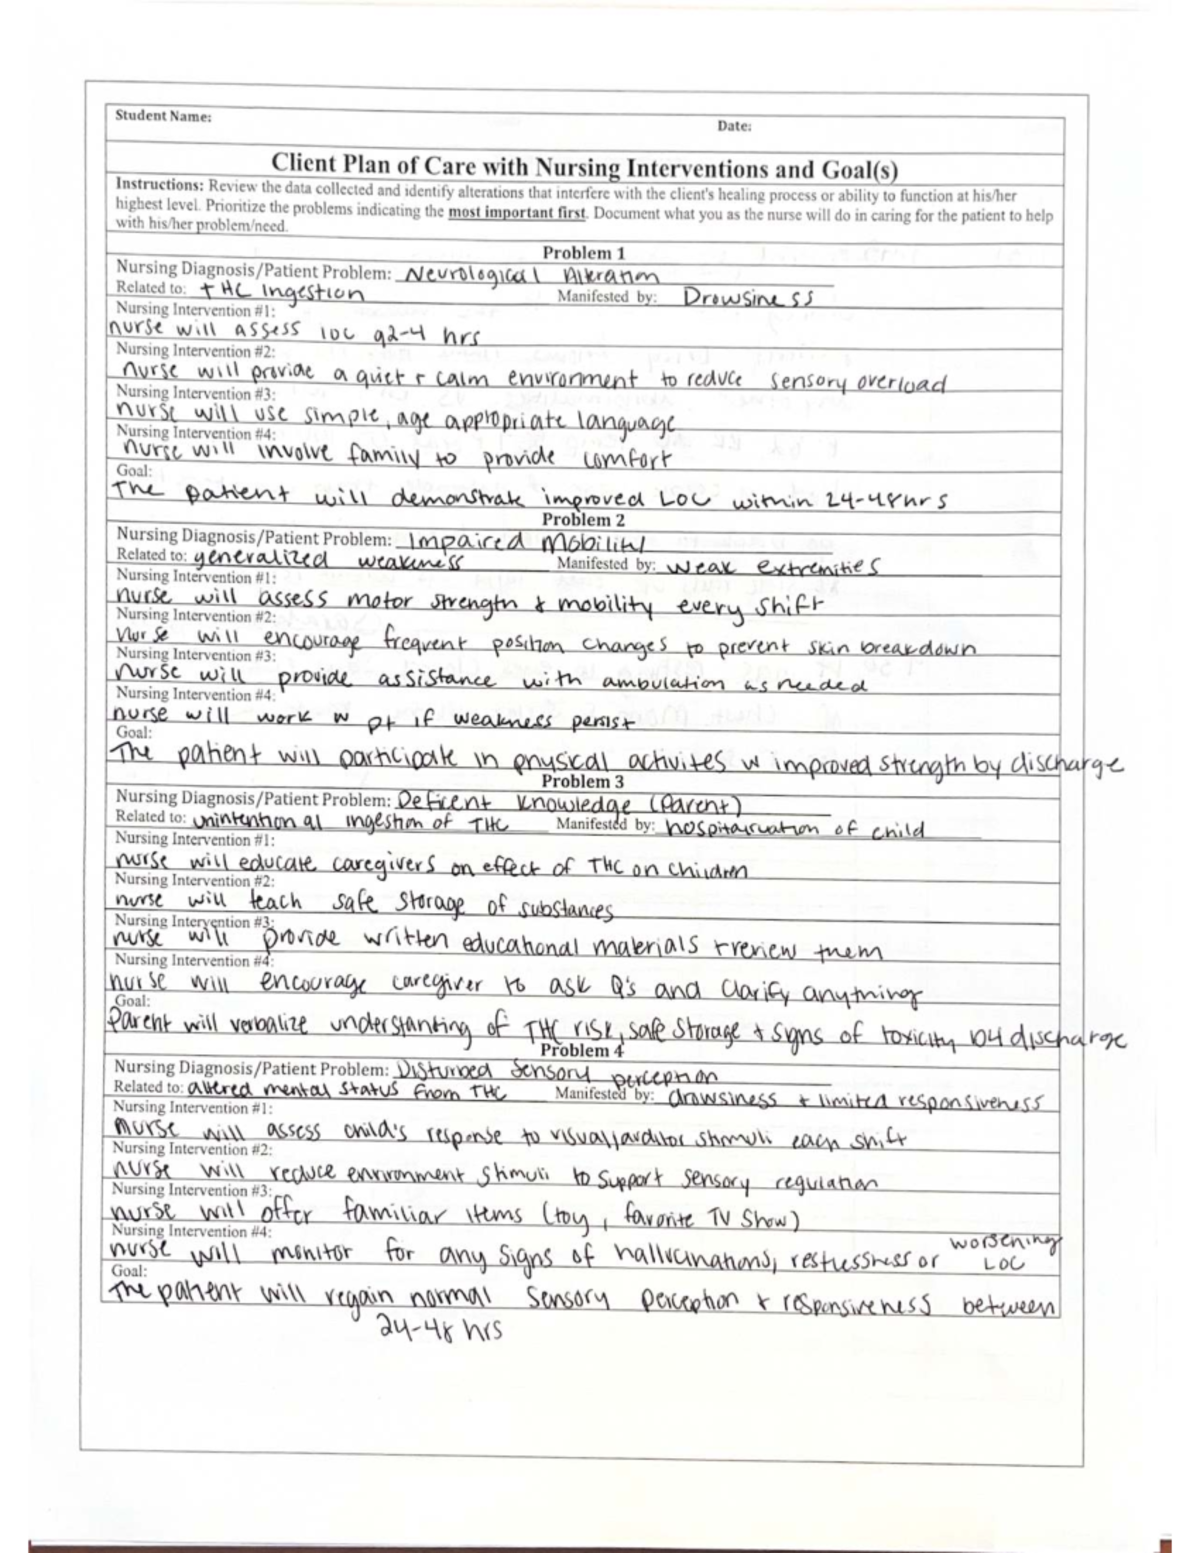 Student Name:
Date:
Client Plan of Care with Nursing Interventions and Goal(s)
Instructions: Review the data collected and identify alterations that interfere with the client's healing process or ability to function at his/her
highest level. Prioritize the problems indicating the most important first. Document what you as the nurse will do in caring for the patient to help
with his/her problem/need.
Problem 1
Nursing Diagnosis/Patient Problem: Neurological Alteration
Related to: THC Ingestion Manifested by: Drowsiness
Nursing Intervention #1:
nurse will assess loc q2-4 hrs
Nursing Intervention #2:
nurse will provide a quiet + calm environment to reduce sensory overload
Nursing Intervention #3:
nurse will use simple, age appropriate language
Nursing Intervention #4:
nurse will involve family to provide comfort
Goal:
The patient will demonstrate improved LOC within 24-48hrs
Problem 2
Nursing Diagnosis/Patient Problem: Impaired Mobility
Related to: generalized weakness Manifested by: weak extremities
Nursing Intervention #1:
nurse will assess motor strength & mobility every shift
Nursing Intervention #2:
Nurse will encourage frequent position changes to prevent skin breakdown
Nursing Intervention #3:
nurse will provide assistance with ambulation as needed
Nursing Intervention #4:
nurse will work w pt if weakness persist
Goal:
The patient will participate in physical activites w improved strength by discharge
Problem 3
Nursing Diagnosis/Patient Problem: Deficent Knowledge (Parent)
Related to: unintentional ingestion of THC Manifested by: hospitalization of child
Nursing Intervention #1:
nurse will educate caregivers on effect of THC on children
Nursing Intervention #2:
nurse will teach safe storage of substances
Nursing Intervention #3:
nurse will provide written educational materials + review them
Nursing Intervention #4:
nurse will encourage caregiver to ask Q's and clarify anything
Goal:
Parent will verbalize understanding of THC risk, safe storage + signs of toxicity by discharge
Problem 4
Nursing Diagnosis/Patient Problem: Disturbed Sensory perception
Related to: altered mental status from THC Manifested by: drowsiness + limited responsiveness
Nursing Intervention #1:
nurse will assess child's response to visual/auditor stimuli each shift
Nursing Intervention #2:
nurse will reduce environment stimuli to support sensory regulation
Nursing Intervention #3:
nurse will offer familiar items (toy, favorite TV show)
Nursing Intervention #4:
nurse will monitor for any signs of hallucinations, restlessness or worsening LOC
Goal:
The patient will regain normal sensory perception + responsiveness between
24-48 hrs